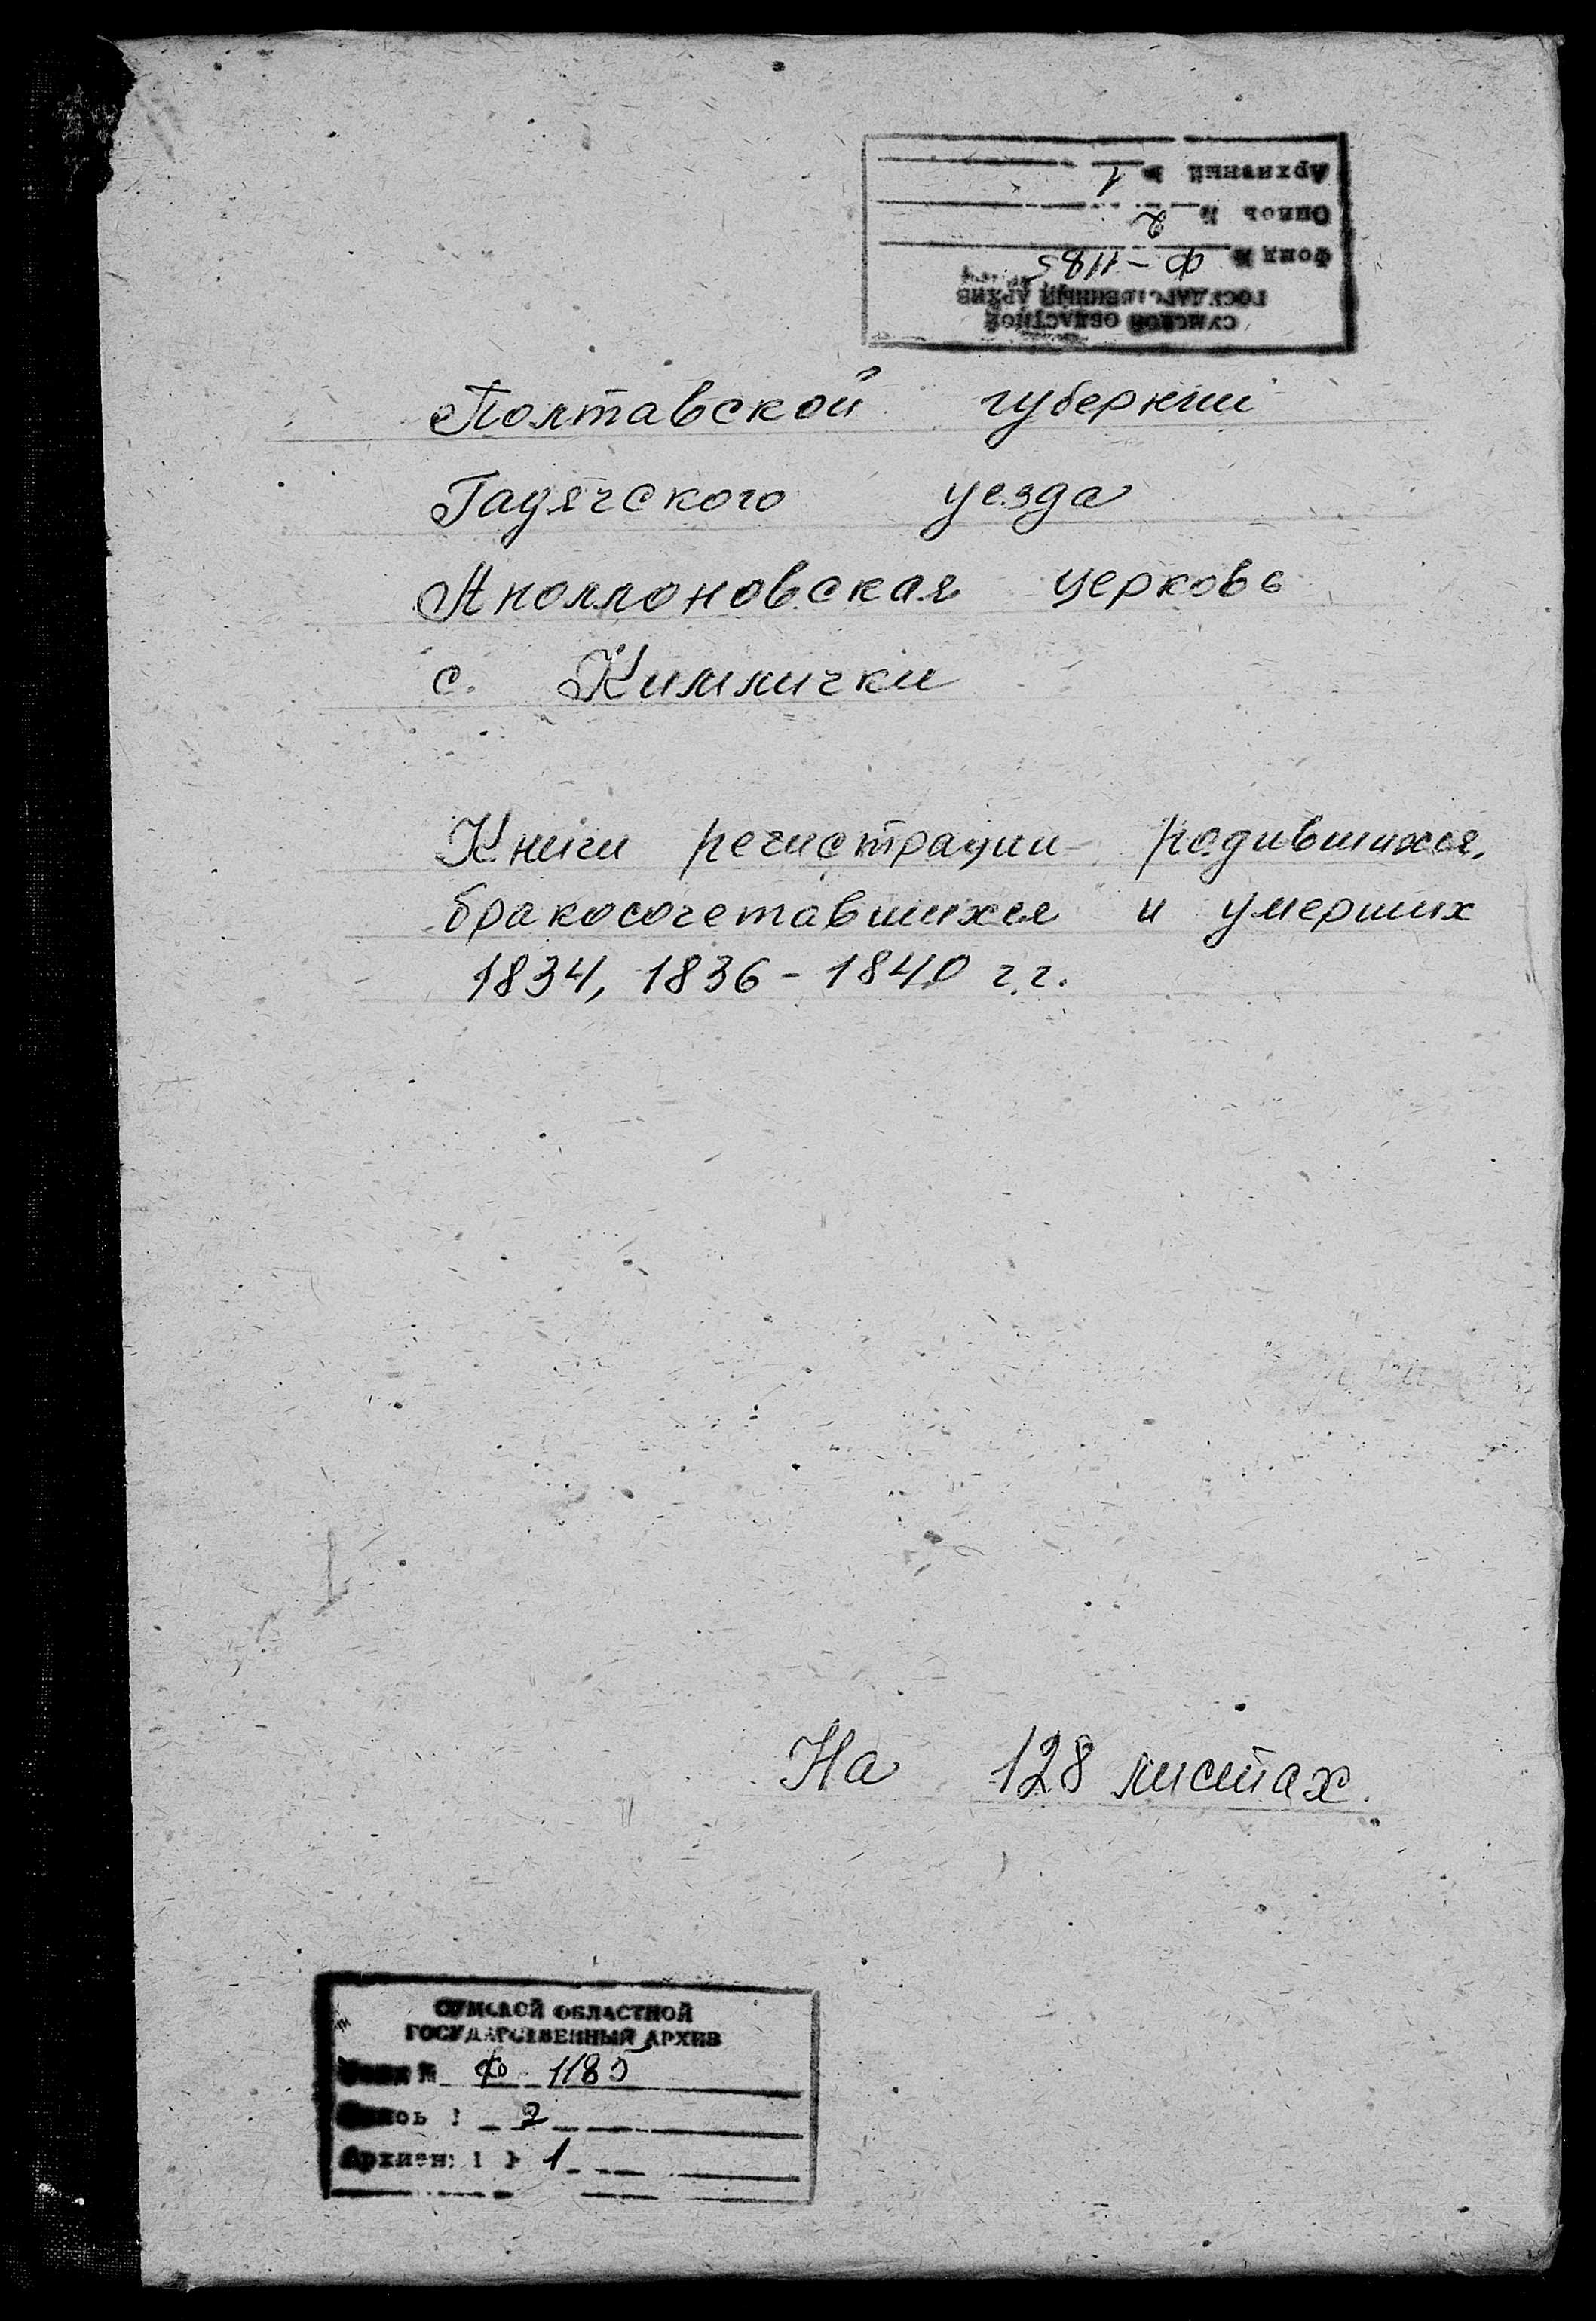 Архивный № 1
Опись № 2
Фонд № Ф-1185
ГОСУДАРСТВЕННЫЙ АРХИВ
СУМСКОЙ ОБЛАСТНОЙ
Полтавской губернии
Гадячского уезда
Аполлоновская церковь
с. Кимлички
Книги регистрации родившихся,
бракосочетавшихся и умерших
1834, 1836-1840 г.г.
На 128 листах.
СУМСКОЙ ОБЛАСТНОЙ
ГОСУДАРСТВЕННЫЙ АРХИВ
Фонд № Ф-1185
Опись № 2
Архивн. № 1